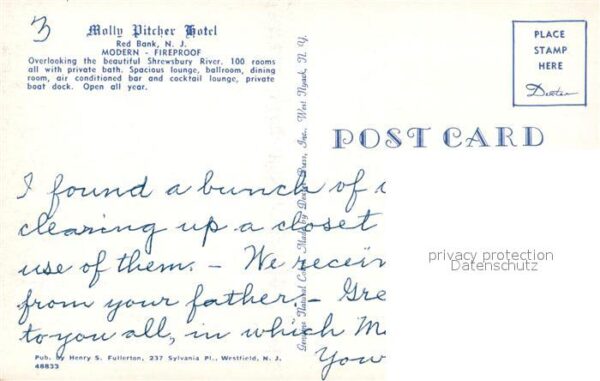 3
Molly Pitcher Hotel
Red Bank, N. J.
MODERN - FIREPROOF
Overlooking the beautiful Shrewsbury River. 100 rooms
all with private bath. Spacious lounge, ballroom, dining
room, air conditioned bar and cocktail lounge, private
boat dock. Open all year.
PLACE
STAMP
HERE
Dexter
POST CARD
Genuine Natural Color Made by Dexter Press, Inc., West Nyack, N. Y.
I found a bunch of
clearing up a closet
use of them. - We
from your father. -
to you all, in which
Pub. by Henry S. Fullerton, 237 Sylvania Pl., Westfield, N. J.
48833
privacy protection
Datenschutz